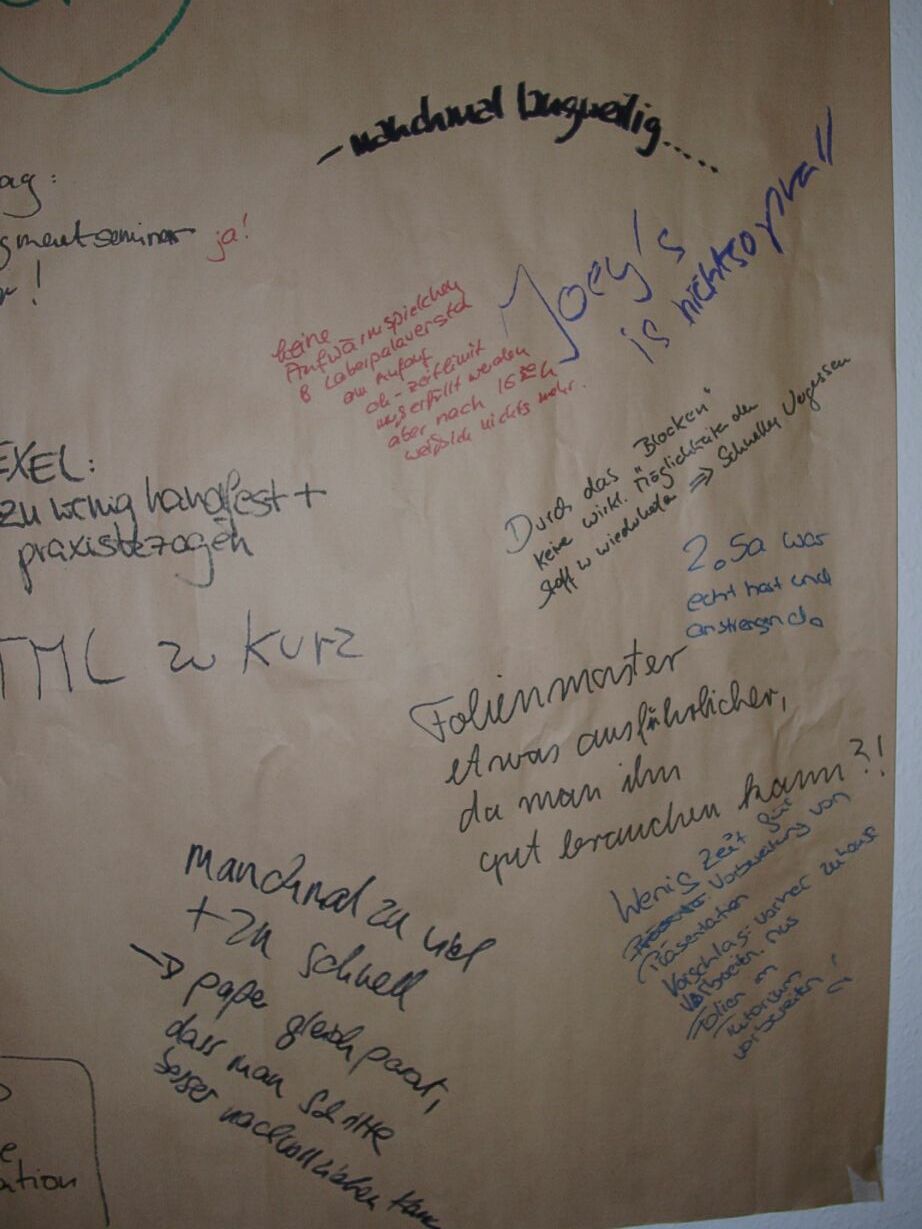 - manchmal langweilig.....
ag:
gmentseminar ja!
r!
Joey's
is nichtsoprall
keine
Aufwärmspielchen
& Laberpalaverstd
am Anfang
ok - zeitlimit
muss erfüllt werden
aber nach 16⁰⁰h
weiß ich nichts mehr.
Durch das "Blocken"
keine wirkl. Möglichkeite den
Stoff zu wiederholen ⇒ Schnelles Vergessen
EXEL:
zu wenig handfest +
praxisbezogen
2. Sa war
echt hart und
anstrengend
TML zu kurz
Folienmaster
etwas ausführlicher,
da man ihn
gut brauchen kann?!
Wenig Zeit für
Vorbereitung von
Präsentation
Vorschlag: vorher zuhause
vorbereiten. nur
Folien im
Tutorium
vorbereiten!
manchmal zu viel
+ zu schnell
→ pape gleich parat,
dass man Schritte
besser nachvollziehen kann
e
ation